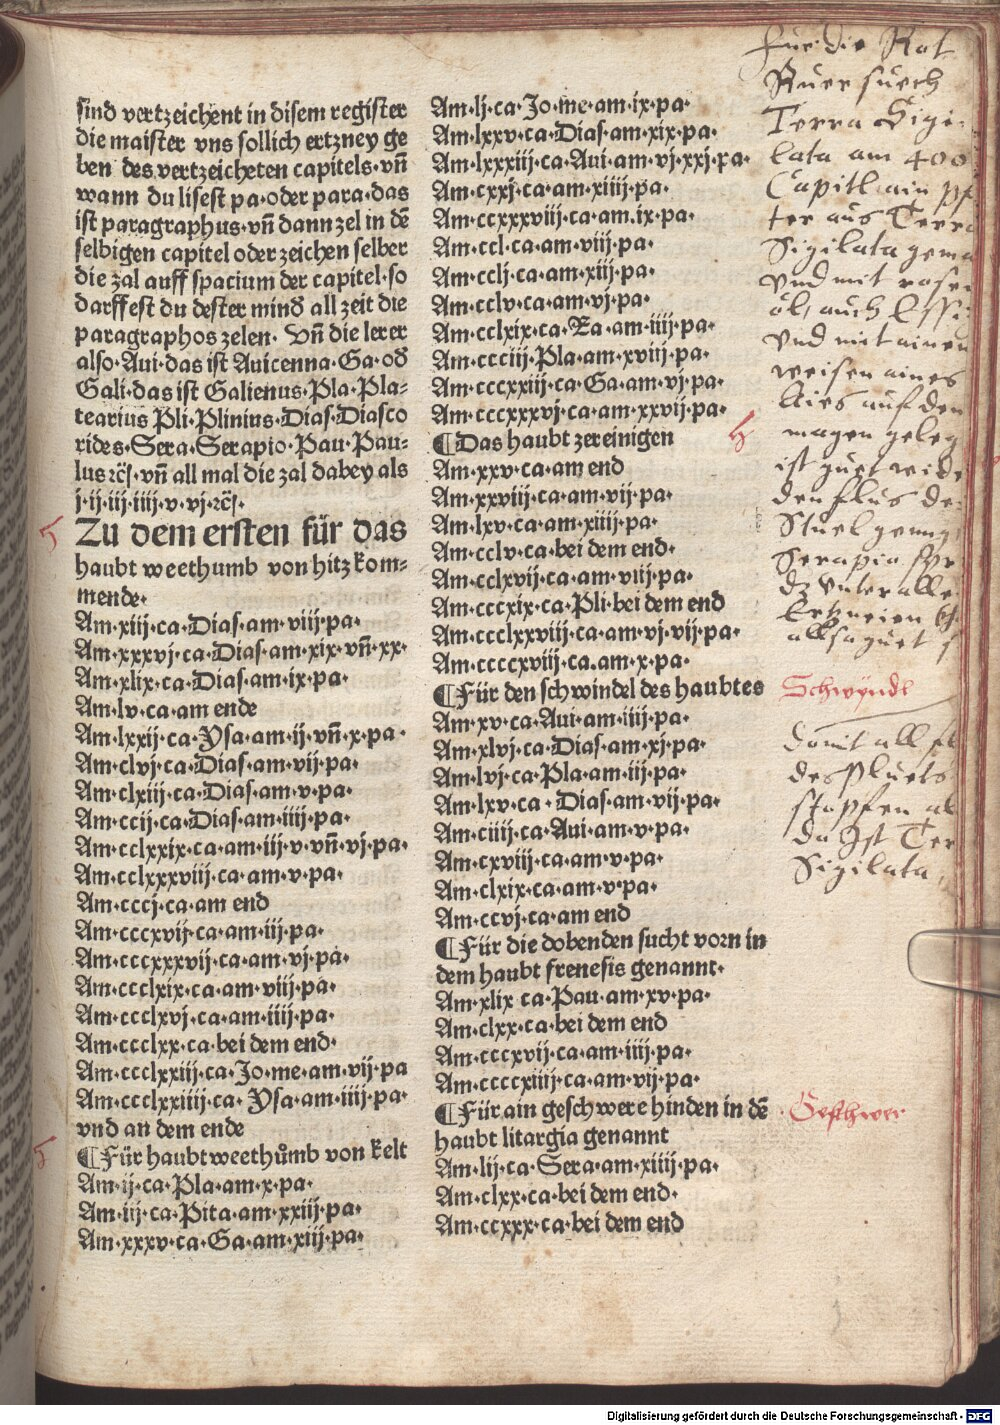 sind vertzeichent in disem register
die maister vns sollich ertzney ge
ben des vertzeicheten capitels·vñ
wann du lisest pa·oder para·das
ist paragraphus·vñ dann zel in dē
selbigen capitel oder zeichen selber
die zal auff spacium der capitel·so
darffest du dester mind all zeit die
paragraphos zelen· Vñ die lerer
also·Aui·das ist Auicenna·Ga·od
Gali·das ist Galienus·Pla·Pla-
tearius Pli·Plinius·Dias·Diasco
rides·Sera·Serapio·Pau·Pau-
lus ꝛc̄·vñ all mal die zal dabey als
j·ij·iij·iiij·v·vj·ꝛc̄·
Zu dem ersten für das
haubt weethumb von hitz kom-
mende·
Am·xiij·ca·Dias·am·viij·pa·
Am·xxxvj·ca·Dias·am·xix·vñ·xx·
Am·xlix·ca·Dias·am·ix·pa·
Am·lv·ca·am ende
Am·lxxij·ca·Ysa·am·ij·vñ·x·pa·
Am·clvj·ca·Dias·am·vij·pa·
Am·clxiij·ca·Dias·am·v·pa·
Am·ccij·ca·Dias·am·iiij·pa·
Am·cclxxix·ca·am·iij·v·vñ·vj·pa·
Am·cclxxxviij·ca·am·v·pa·
Am·cccj·ca·am end
Am·cccxvij·ca·am·iij·pa·
Am·cccxxxvij·ca·am·vj·pa·
Am·ccclxix·ca·am·viij·pa·
Am·ccclxvj·ca·am·iiij·pa·
Am·ccclxx·ca·bei dem end·
Am·ccclxxiij·ca·Jo·me·am·vij·pa
Am·ccclxxiiij·ca·Ysa·am·iiij·pa·
vnd an dem ende
¶Für haubtweethůmb von kelt
Am·ij·ca·Pla·am·x·pa·
Am·iij·ca·Pita·am·xxiij·pa·
Am·xxxv·ca·Ga·am·xiij·pa·
Am·lj·ca·Jo·me·am·ix·pa·
Am·lxxv·ca·Dias·am·xix·pa·
Am·lxxxiij·ca·Aui·am·vj·xxj·pa·
Am·cxxj·ca·am·xiiij·pa·
Am·ccxxxviij·ca·am·ix·pa·
Am·ccl·ca·am·viij·pa·
Am·cclj·ca·am·xiij·pa·
Am·cclv·ca·am·vj·pa·
Am·cclxix·ca·Ra·am·iiij·pa·
Am·ccciij·Pla·am·xviij·pa·
Am·cccxxiij·ca·Ga·am·vj·pa·
Am·cccxxxvj·ca·am·xxvij·pa·
¶Das haubt zereinigen
Am·xxv·ca·am end
Am·xxviij·ca·am·vij·pa·
Am·lxv·ca·am·xiiij·pa·
Am·cclv·ca·bei dem end·
Am·cclxvij·ca·am·viij·pa·
Am·cccxix·ca·Pli·bei dem end
Am·ccclxxviij·ca·am·vj·vij·pa·
Am·ccccxviij·ca·am·x·pa·
¶Für den schwindel des haubtes
Am·xv·ca·Aui·am·iiij·pa·
Am·xlvj·ca·Dias·am·xj·pa·
Am·lvj·ca·Pla·am·iij·pa·
Am·lxv·ca·Dias·am·vij·pa·
Am·ciiij·ca·Aui·am·v·pa·
Am·cxviij·ca·am·v·pa·
Am·clxix·ca·am·v·pa·
Am·ccvj·ca·am end
¶Für die dobenden sucht vorn in
dem haubt frenesis genannt·
Am·xlix ca·Pau·am·xv·pa·
Am·clxx·ca·bei dem end
Am·cccxvij·ca·am·iiij·pa·
Am·ccccxiiij·ca·am·vij·pa·
¶Für ain geschwere hinden in dē
haubt litargia genannt
Am·lij·ca·Sera·am·xiiij·pa·
Am·clxx·ca·bei dem end·
Am·ccxxx·ca·bei dem end
für die Rot
Ruer
Terra Sigi
lata am 400
Capitl ain
ter aus Terra
Sigilata
vnd mit rosen
öl, auch Essi
vnd mit ainem
weisen aines
auf den
magen geleg
ist guet wide
den flus de
Stuelgeng
Serapio
dz vnter alle
Ertzneien
guet
Schwyndl
damit all
des pluets
stopfen
da Ist Ter
Sigilata
Geschwer
Digitalisierung gefördert durch die Deutsche Forschungsgemeinschaft - DFG